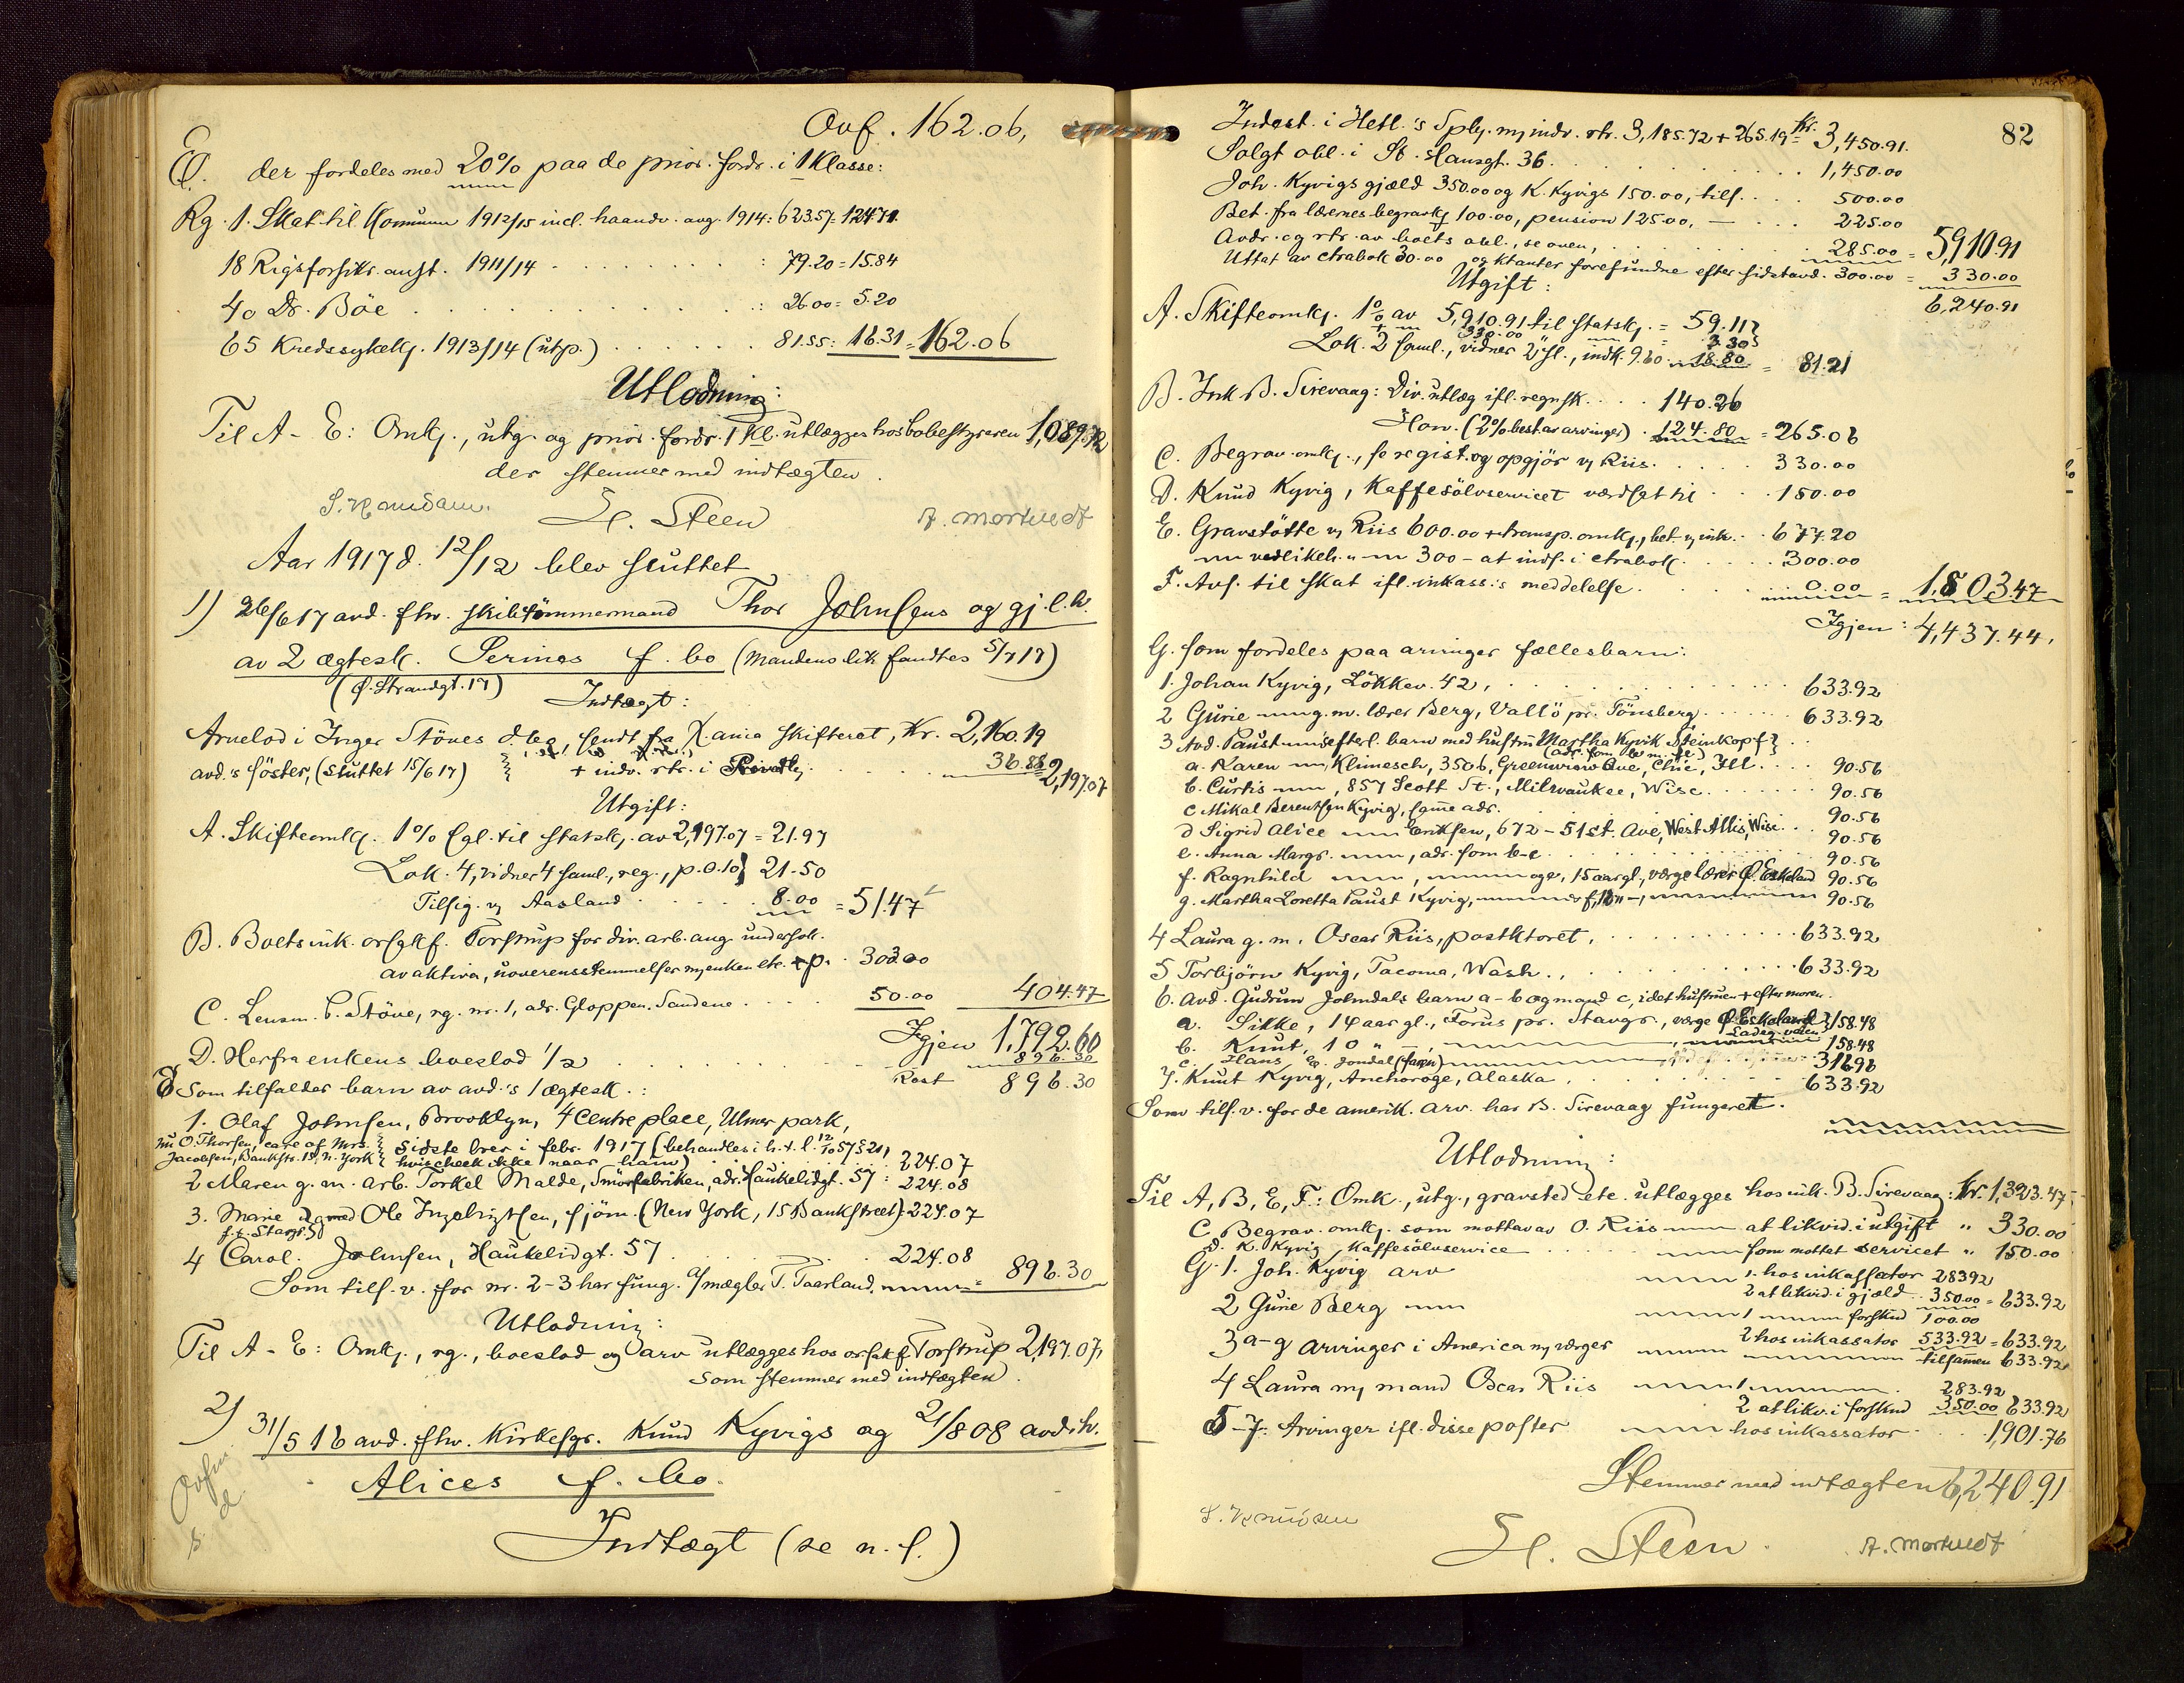 Ovf. 162.06,
E. der fordeles med 20% paa de prior. fordr. i 1 Klasse:
Rg. 1. Skat til Komunen 1912/15 incl. haandv. avg. 1914: 623.57 = 124.71
18 Rigsforsikr. anst. 1911/14 . . . : 79.20 = 15.84
40 Dr. Böe . . . : 26.00 = 5.20
65 Kredssykek. 1913/14 (utp.) . . . 81.55: 16.31 = 162.06
Utlodning:
Til A - E: Omk., utg. og prior. fordr. 1 Kl. utlægges hos bobestyreren 1,089.72
der stemmer med indtægten.
S. Knudsen. H. Steen A. Mortvedt
Aar 1917 d. 12/12 blev sluttet
1) 26/6 17 avd. fhv. skibstömmermand Thor Johnsens og gj. l. h.
av 2 ægtesk. Serines f. bo (Mandens lik fandtes 5/7 17)
(Ø. Strandgt. 17)
Indtægt:
Arvelod i Inger Stöves d. bo, sendt fra X.ania skifteret, Kr. 2,160.19
avd.'s söster, (sluttet 15/6 17) + indv. rtr. i Privatb. . . . 36.88 = 2,197.07
Utgift:
A. Skifteomk. 1% sgl. til statsk. av 2,197.07 = 21.97
Lok. 4, vidner 4 saml., reg., p. o. 10 21.50
Tilsig. v. Aasland . . . 8.00 = 51.47
B. Boets ink. orsakf. Torstrup for div. arb. ang. undersök.
av aktiva, uoverensstemmelser m. enken etc. + p. . 303.00
C. Lensm. C. Stöve, rg. nr. 1, adr. Gloppen, Sandene . . . 50.00 404.47
Igjen 1,792.60
D. Herfra enkens boeslod 1/2 . . . 896.30
Rest 896.30
E Som tilfalder barn av avd.'s 1 ægtesk.:
1. Olaf Johnsen, Brooklyn, 4 Centre place, Ulmer park,
nu O. Thorsen, care of Mrs. sidste brev i febr. 1917 (behandles i h. t. l. 12/10 57 § 20,
Jacobsen, Bankstr. 15, N. York hvis check ikke naar ham) . . . 224.07
2 Maren g. m. arb. Torkel Malde, Smörfabriken, adr. Haukelidgt. 57: 224.08
3. Marie g. med Ole Ingebrigtsen, sjöm. (New York, 15 Bankstreet): 224.07
f. t. Stavgr.
4 Carol. Johnsen, Haukelidgt. 57 . . . 224.08
Som tilf. v. for nr. 2-3 har fung. s/mægler T. Taarland. = 896.30
Utlodning:
Til A - E: Omk., rg., boeslod og arv utlægges hos orsakf. Torstrup 2,197.07,
som stemmer med indtægten.
2) 31/5 16 avd. fhv. Kirkesgr. Knud Kyvigs og 21/8 08 avd. h.
Alices f. bo.
Indtægt (se n. s.)
82
Indest. i Hetl.'s Spb. m. indv. rtr. 3,185.72 + 265.19 = Kr. 3,450.91.
Solgt obl. i St. Hansgt. 36 . . . 1,450.00
Joh. Kyvigs gjæld 350.00 og K. Kyvigs 150.00, tils. . . . 500.00
Bet. fra lærernes begravk. 100.00, pension 125.00, — . . . 225.00
Avdr. og rtr. av boets obl., se oven, . . . 285.00 = 5,910.91
Uttat av etrabok 30.00 og ktanter forefundne efter sidstavd. 300.00 = 330.00
6,240.91
Utgift:
A. Skifteomk. 1% av 5,910.91 til statsk. = 59.11
+ 330.00 = 3.30
Lok. 2 saml., vidner 2 sl., indk. 9.60 . 18.80 = 81.21
B. Ink B. Sirevaag: Div. utlæg ifl. regnsk. . . . 140.26
Hon. (2% best. av arvinger) . 124.80 = 265.06
C. Begrav. omk., se regist. og opgjör v. Riis. . . . 330.00
D. Knud Kyvig, Kaffesölvservicet værdsat til . . . 150.00
E. Gravstötte v. Riis 600.00 + transp. omk., bet. v. ink. . . 677.20
vedlikeh. 300 - at inds. i etrabok . . . 300.00
F. Avs. til skat ifl. inkass.'s meddelelse . . . 0.00 = 1,803.47
Igjen: 4,437.44.
G. som fordeles paa arvinger fællesbarn:
1. Johan Kyvig, Lökkev. 42, . . . 633.92
2 Gurie g. m. lærer Berg, Vallö pr. Tönsberg . . . 633.92
3 Avd. Paust efterl. barn med hustru Martha Kyvik Steinkopf
(adr. som b. m. fl.)
a. Karen Klimesch, 3506, Greenview Ave, Chic, Ill. . . . 90.56
b. Curtis, 857 Scott St., Milwaukee, Wisc . . . 90.56
c Mikal Berentsen Kyvig, samme adr. . . . 90.56
d Sigrid Alice Eriksen, 672 - 51st. Ave, West Allis, Wisc. . . 90.56
e. Anna Margr., adr. som b-c . . . 90.56
f. Ragnhild, 15 aar gl., værge lærer Ø. Eskeland 90.56
g. Martha Loretta Paust Kyvig, 90.56
4 Laura g. m. Oscar Riis, postktoret, . . . 633.92
5 Torbjörn Kyvig, Tacoma, Wash., . . . 633.92
6. Avd. Gudrun Jolmdals barn a - b og mand c, idet hustruen + efter moren.
a. Sikke, 14 aar gl., Forus pr. Stavgr., værge Ø. Eskeland 158.48
Ladeg. veien
b. Knut, 10 " — , 158.48
c. Hans E. Jondal (faren) 316.96
7. Knut Kyvig, Anchorage, Alaska . . . 633.92
Som tils. v. for de amerik. arv. har B. Sirevaag fungeret.
Utlodning:
Til A, B, E, F: Omk., utg., gravsted etc. utlægges hos ink. B. Sirevaag: Kr. 1,323.47
C Begrav. omk. som mottaes av O. Riis at likvid. i utgift " 330.00
D. K. Kyvig Kaffesölvservice . . . som mottat servicet " 150.00
G. 1. Joh. Kyvig arv 1. hos inkassator 283.92
2 at likvid. i gjæld 350.00 = 633.92
2 Gurie Berg 1 forskud 100.00
2 hos inkassator 533.92 = 633.92
3 a-g Arvinger i America m. værger tilsamen 633.92
4 Laura m. mand Oscar Riis 1 283.92
2 at likv. i forskud 350.00 633.92
5 - 7: Arvinger ifl. disse poster hos inkassator . . 1,901.76
Stemmer med indtægten 6,240.91
S. Knudsen H. Steen. A. Mortvedt